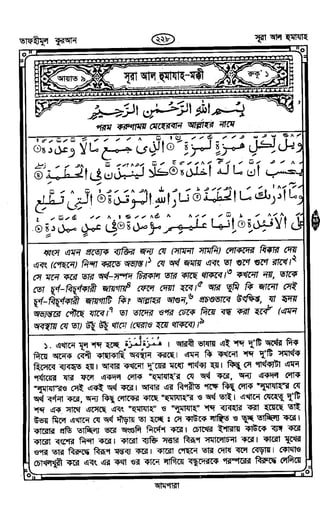 তাফহীমুল কুরআন ২২৮ সূরা আল হুমাযাহ
আয়াত ৯ সূরা আল হুমাযাহ-মক্কী রুকু' ১
بِسْمِ اللّٰهِ الرَّحْمٰنِ الرَّحِيْمِ
পরম করুণাময় মেহেরবান আল্লাহর নামে
وَيْلٌ لِّكُلِّ هُمَزَةٍ لُّمَزَةٍ ۝ الَّذِىْ جَمَعَ مَالًا وَّعَدَّدَهٗ ۝
يَحْسَبُ اَنَّ مَالَهٗٓ اَخْلَدَهٗ ۝ كَلَّا لَيُنْۢبَذَنَّ فِى الْحُطَمَةِ ۝
وَمَآ اَدْرٰىكَ مَا الْحُطَمَةُ ۝ نَارُ اللّٰهِ الْمُوْقَدَةُ ۝ الَّتِىْ تَطَّلِعُ
عَلَى الْاَفْـِٕدَةِ ۝ اِنَّهَا عَلَيْهِمْ مُّؤْصَدَةٌ ۝ فِىْ عَمَدٍ مُّمَدَّدَةٍ ۝
ধ্বংস এমন প্রত্যেক ব্যক্তির জন্য যে (সামনা সামনি) লোকদের ধিক্কার দেয়
এবং (পেছনে) নিন্দা করতে অভ্যস্ত।১ যে অর্থ জমায় এবং তা গুণে গুণে রাখে।২
সে মনে করে তার অর্থ-সম্পদ চিরকাল তার কাছে থাকবে।৩ কখনো নয়, তাকে
তো চূর্ণ-বিচূর্ণকারী জায়গায়৪ ফেলে দেয়া হবে।৫ আর তুমি কি জানো সেই
চূর্ণ-বিচূর্ণকারী জায়গাটি কি? আল্লাহর আগুন,৬ প্রচণ্ডভাবে উৎক্ষিপ্ত, যা হৃদয়
অভ্যন্তরে পৌঁছে যাবে।৭ তা তাদের ওপর ঢেকে দিয়ে বন্ধ করা হবে৮ (এমন
অবস্থায় যে তা) উঁচু উঁচু থামে (ঘেরাও হয়ে থাকবে)।৯
১. এখানে মূল শব্দ হচ্ছে هُمَزَةٍ لُّمَزَةٍ । আরবী ভাষায় এই শব্দ দু'টি অর্থের দিক
দিয়ে অনেক বেশী কাছাকাছি অবস্থান করছে। এমন কি কখনো শব্দ দু'টি সমার্থক
হিসেবে ব্যবহৃত হয়। আবার কখনো দু'য়ের মধ্যে পার্থক্য হয়। কিন্তু সে পার্থক্যটা এমন
পর্যায়ের যার ফলে একদল লোক "হুমাযাহ"র যে অর্থ করে, অন্য একদল লোক
"লুমাযাহ"রও সেই একই অর্থ করে। আবার এর বিপরীত পক্ষে কিছু লোক "লুমাযাহ"র যে
অর্থ বর্ণনা করে, অন্য কিছু লোকের কাছে "হুমাযাহ"র ও অর্থ তাই। এখানে যেহেতু দু'টি
শব্দ এক সাথে এসেছে এবং "হুমাযাহ" ও "লুমাযাহ" শব্দ ব্যবহার করা হয়েছে তাই
উভয় মিলে এখানে যে অর্থ দাঁড়ায় তা হচ্ছে : সে কাউকে লাঞ্ছিত ও তুচ্ছ তাচ্ছিল্য করে।
কারোর প্রতি তাচ্ছিল্য ভরে অংগুলি নির্দেশ করে। চোখের ইশারায় কাউকে ব্যঙ্গ করে
কারো বংশের নিন্দা করে। কারো ব্যক্তি সত্তার বিরূপ সমালোচনা করে। কারো মুখের
ওপর তার বিরুদ্ধে বিরূপ মন্তব্য করে। কারো পেছনে তার দোষ বলে বেড়ায়। কোথাও
চোখলখুরী করে এবং এর কথা ওর কানে লাগিয়ে বন্ধুদেরকে পরস্পরের বিরুদ্ধে লেলিয়ে
আমপারা